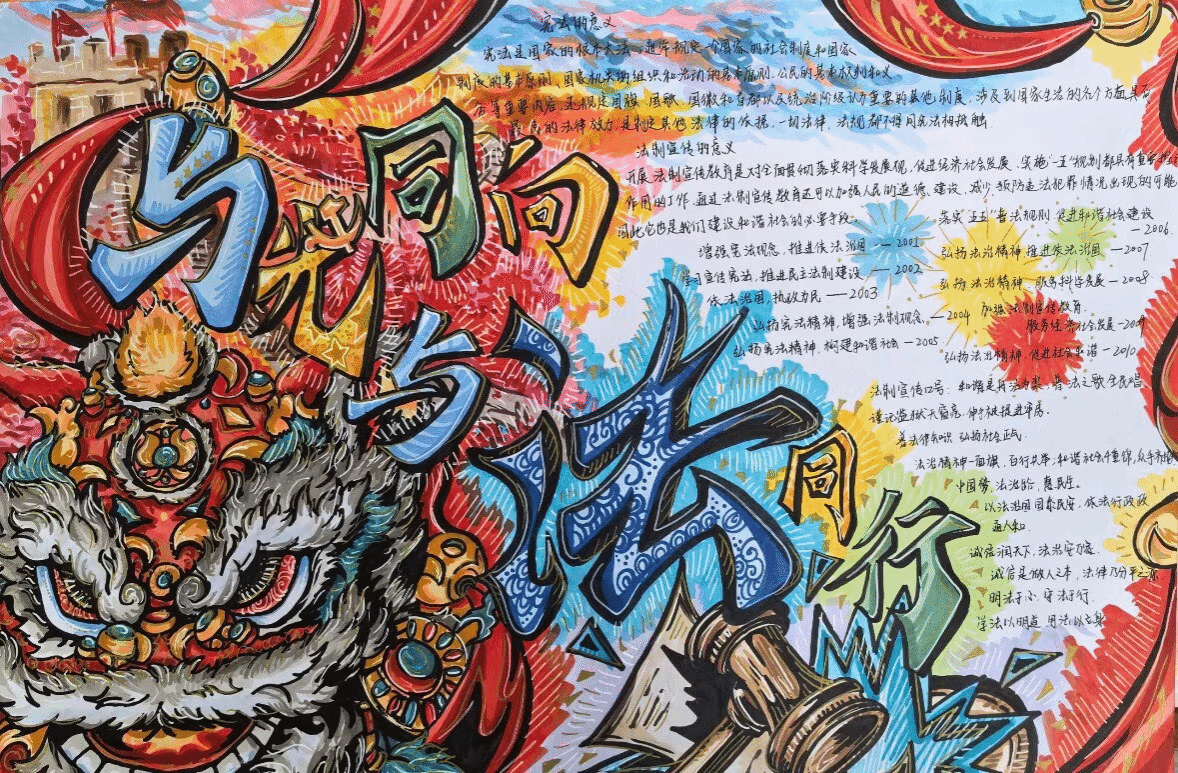 与光同向
与法同行
宪法的意义
宪法是国家的根本大法，通常规定一个国家的社会制度和国家
制度的基本原则、国家机关的组织和活动的基本原则，公民的基本权利和义
务等重要内容，还规定国旗、国歌、国徽和首都以及统治阶级认为重要的其他制度，涉及到国家生活的各个方面具有
的法律效力，是制定其他法律的依据，一切法律、法规都不得同宪法相抵触
法制宣传的意义
开展法制宣传教育是对全面贯彻落实科学发展观，促进经济社会发展，实施"一五"规划都具有重要的
作用的工作，通过法制宣传教育还可以加强人民的道德建设，减少预防违法犯罪情况出现的可能
因此它也是我们建设和谐社会的必要手段
增强宪法观念，推进依法治国——2001
学习宣传宪法，推进民主法制建设——2002
依法治国，执政为民——2003
弘扬宪法精神，增强法制观念——2004
弘扬宪法精神，构建和谐社会——2005
落实"五五"普法规划 促进和谐社会建设
——2006
弘扬法治精神 推进依法治国——2007
弘扬法治精神，服务科学发展——2008
加强法制宣传教育
服务经济社会发展—2009
弘扬法治精神，促进社会和谐—2010
法制宣传口号：和谐是 普法之歌全民唱
谨记监狱天窗亮，伸手被捉进牢房。
普法律知识 弘扬社会正气
法治精神一面旗，百行共举，和谐社会
中国梦，法治路，惠民生。
以法治国国泰民安，依法行政政
通人和
诚信润天下，法治安万家
诚信是做人之本，法律乃公平之
明法于心 守法于行
学法以明道 用法以